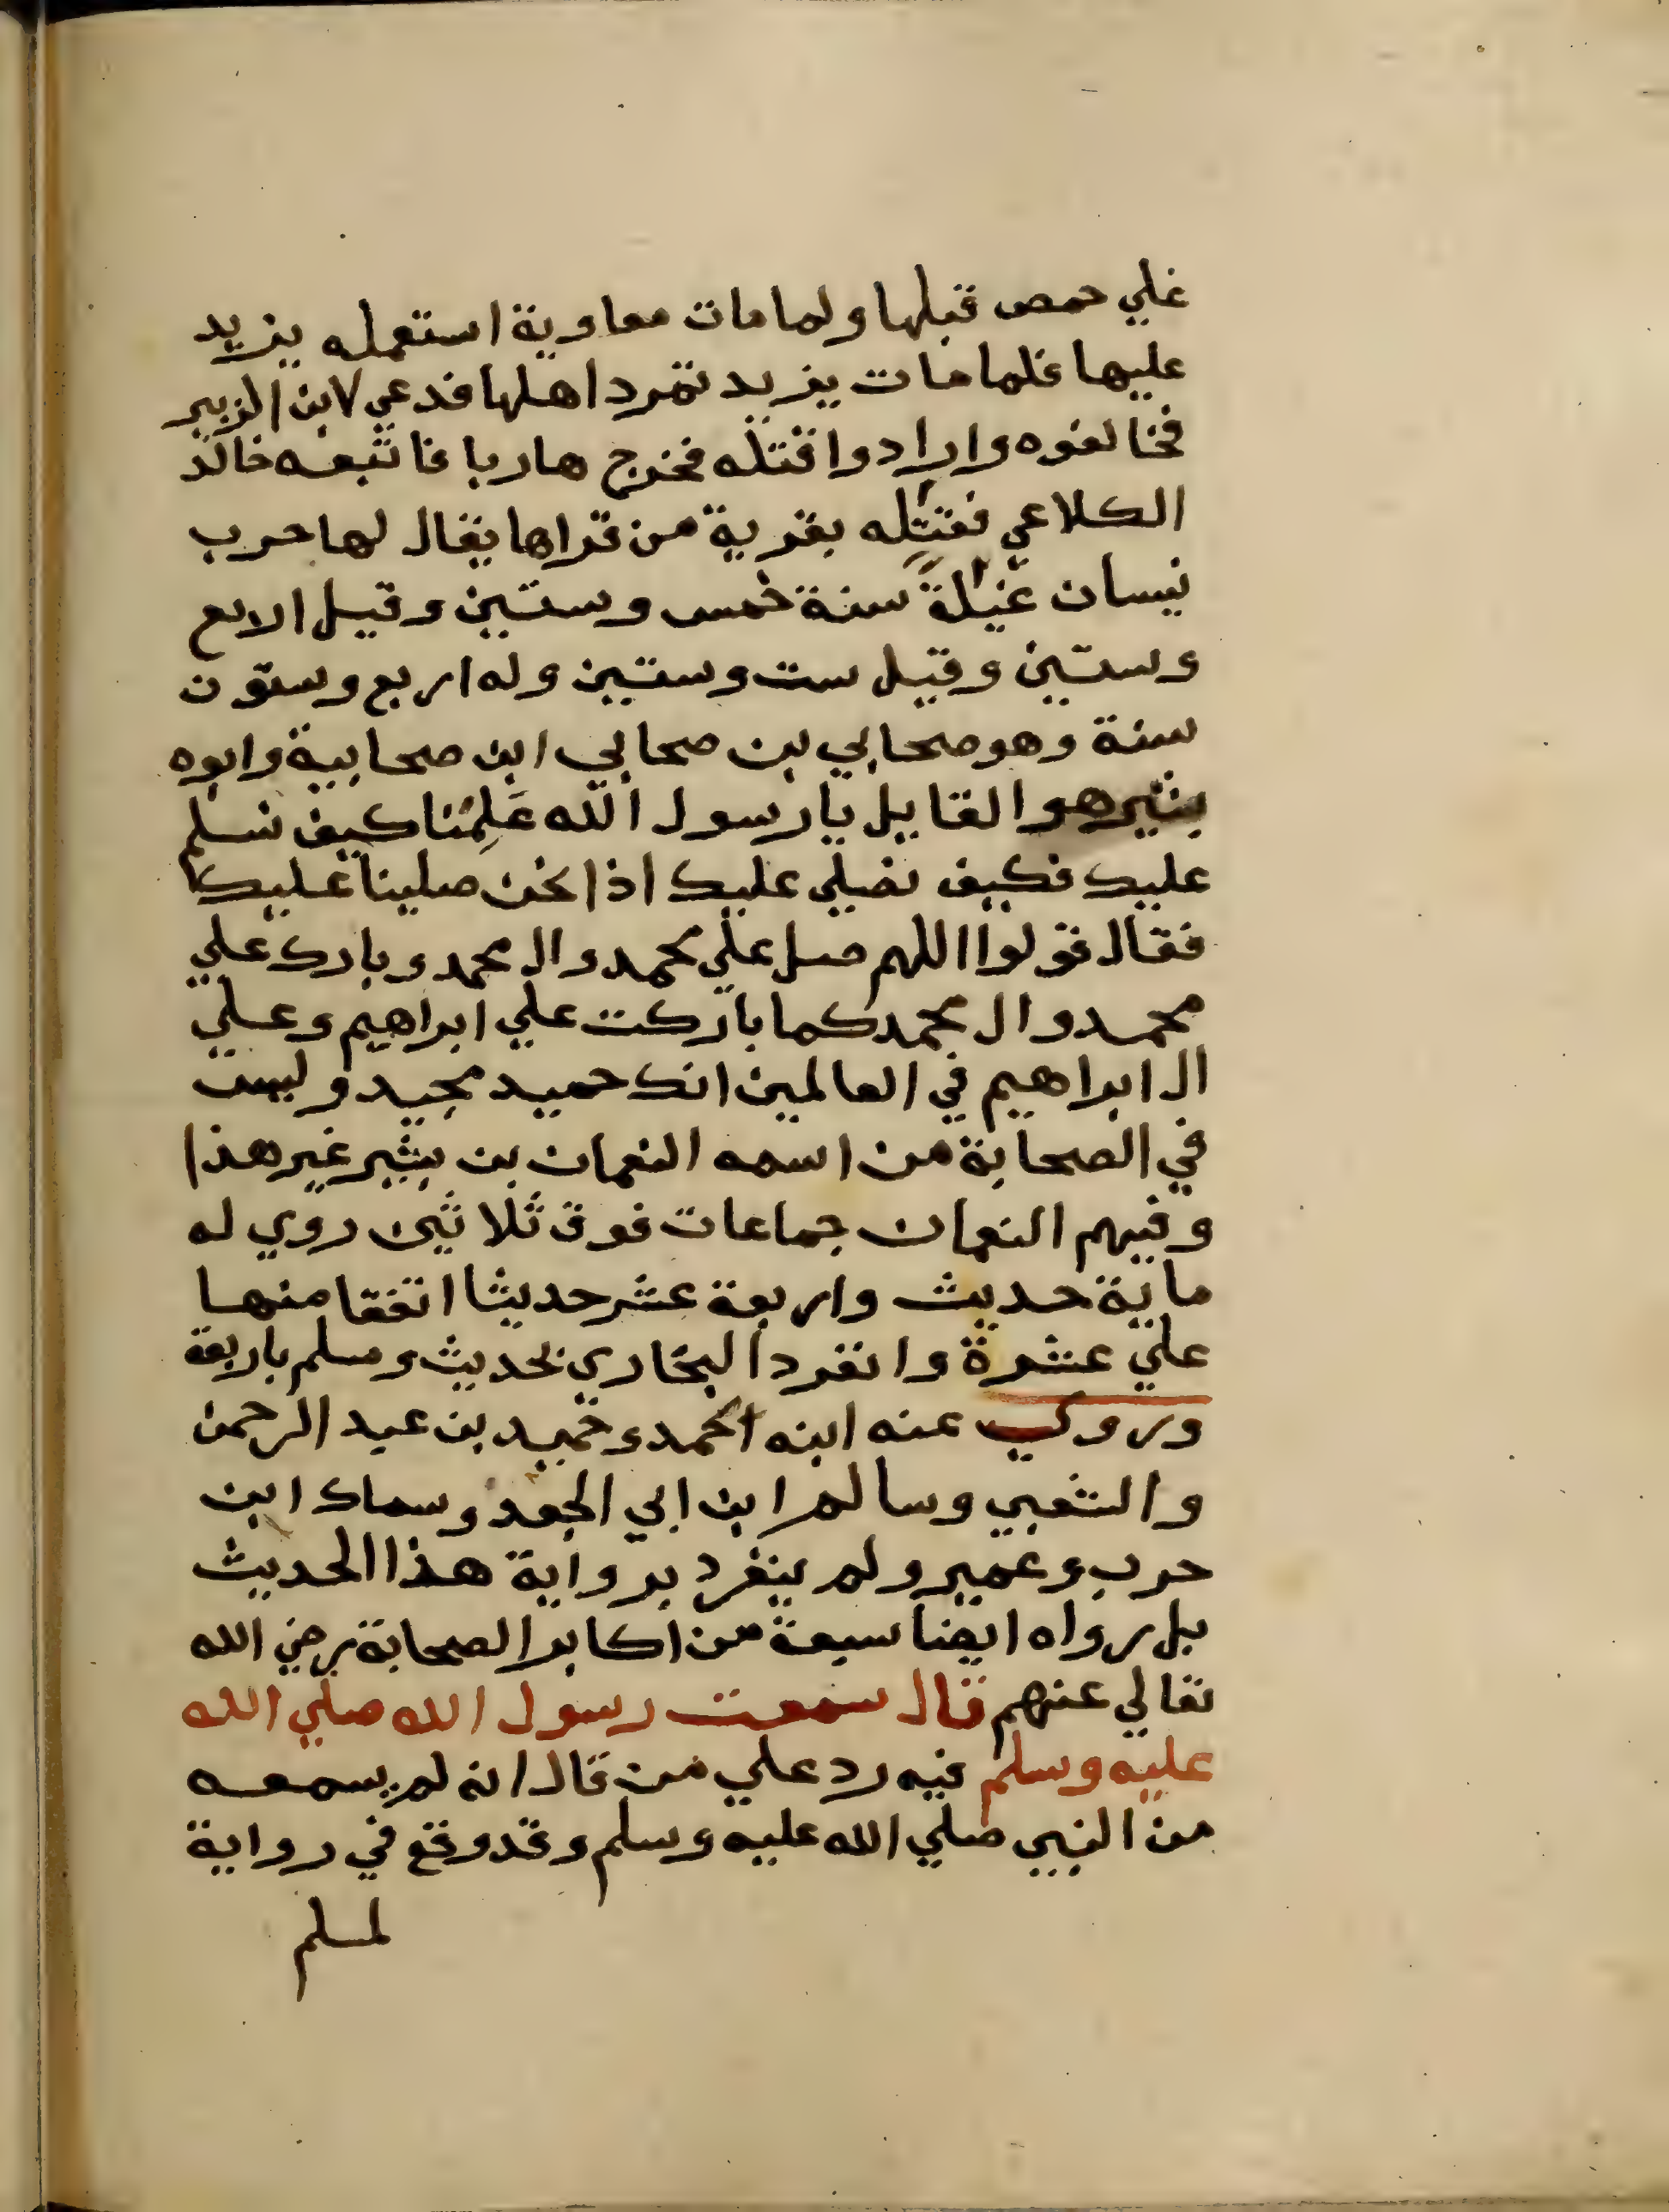 علي حمص قبلها ولما مات معاوية استعمله يزيد
عليها فلما مات يزيد تمرد اهلها فدعي لابن الزبير
فخالفوه وارادوا قتله فخرج هاربا فاتبعه خالد
الكلاعي فقتله بقرية من قراها يقال لها حرب
نيسان غيلة سنة خمس وستين وقيل اربع
وستين وقيل ست وستين وله اربع وستون
سنة وهو صحابي بن صحابي ابن صحابية وابوه
بشير هو القايل يا رسول الله علمنا كيف نسلم
عليك فكيف نصلي عليك اذا نحن صلينا عليك
فقال قولوا اللهم صل علي محمد وال محمد وبارك علي
محمد وال محمد كما باركت علي ابراهيم وعلي
ال ابراهيم في العالمين انك حميد مجيد وليس
في الصحابة من اسمه النعمان بن بشير غير هذا
وفيهم النعمان جماعات فوق ثلاثين روي له
ماية حديث واربعة عشر حديثا اتفقا منها
علي عشرة وانفرد البخاري بحديث ومسلم باربعة
وروي عنه ابنه محمد وحميد بن عبد الرحمن
والشعبي وسالم ابن ابي الجعد وسماك ابن
حرب وغير ولم ينفرد برواية هذا الحديث
بل رواه ايضا سبعة من اكابر الصحابة رضي الله
تعالي عنهم قال سمعت رسول الله صلي الله
عليه وسلم فيه رد علي من قال انه لم يسمعه
من النبي صلي الله عليه وسلم وقد وقع في رواية
لمسلم